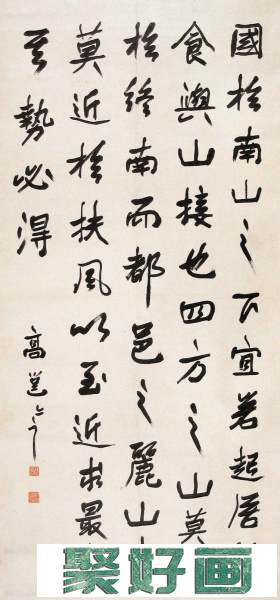 國於南山之下宜若起居
食與山接也四方之山莫
於終南而都邑之麗山
莫近於扶風以至近求最
其勢必得
高邕
聚好画